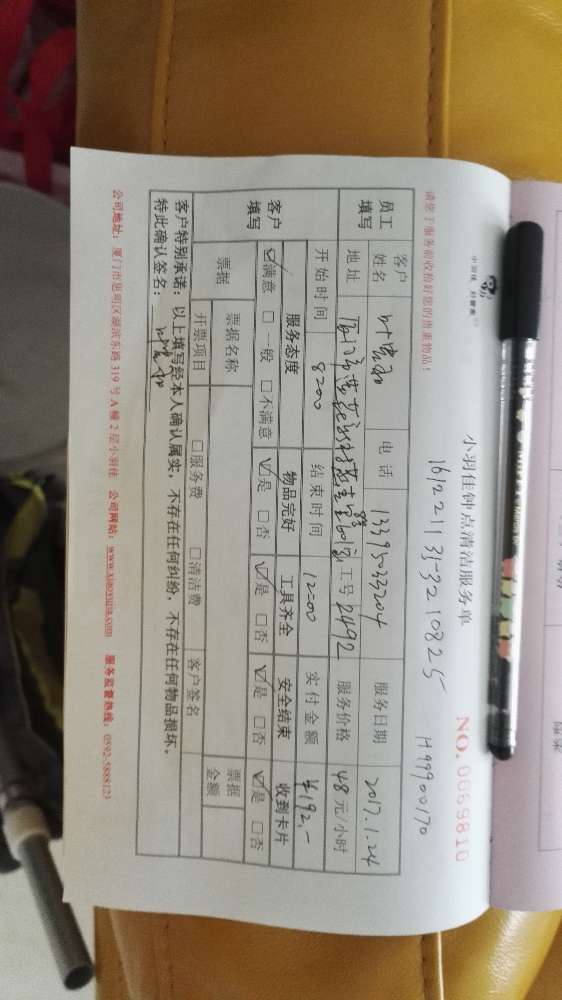 小羽佳钟点清洁服务单
NO. 0069810
16122113-3210825
H99900170
请您于服务前收拾好您的贵重物品！
员工填写
客户姓名
电话 13395032204
服务日期 2017.1.24
地址
工号 2492
服务价格 48元/小时
开始时间 8:00
结束时间 12:00
实付金额 ¥192.-
客户填写
服务态度 物品完好 工具齐全 安全结束 收到卡片
☑满意 □一般 □不满意 ☑是 □否 ☑是 □否 ☑是 □否 ☑是 □否
票据
票据名称
票据金额
开票项目 □服务费 □清洁费 客户签名
客户特别承诺：以上填写经本人确认属实，不存在任何纠纷，不存在任何物品损坏。
特此确认签名：
公司地址：厦门市思明区湖滨东路319号A幢2层小羽佳 公司网站：www.xiaoyujia.com 服务监督热线：0592-5888123